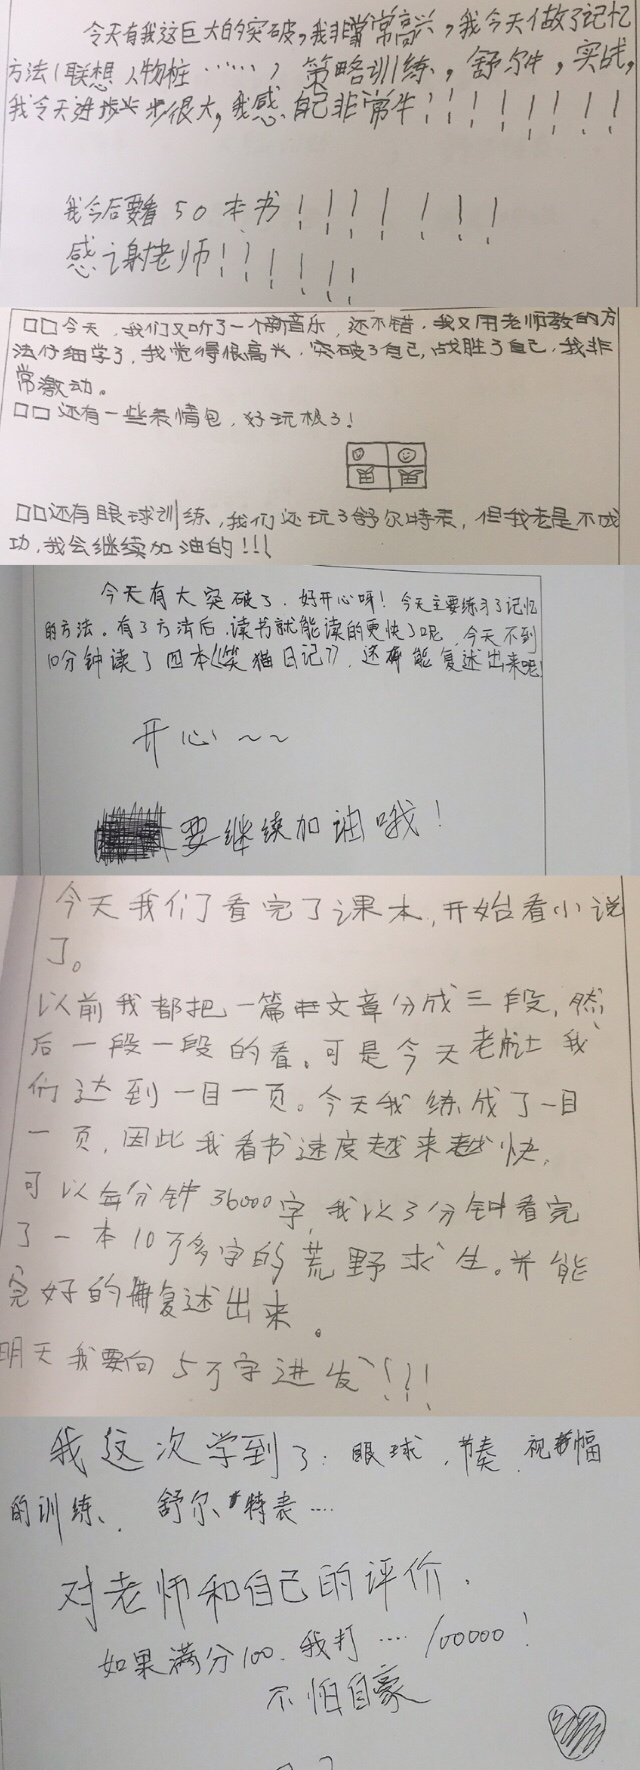 今天有我这巨大的突破,我非常高兴,我今天做了记忆
方法(联想 人物桩 ……,策略训练,舒尔牛,实战,
我今天进步很大,我感自己非常牛!!!!!!!!!
我今后要看50本书!!!!!!!
感谢老师!!!!!!
□□今天,我们又听了一个新音乐,还不错.我又用老师教的方
法仔细学了,我觉得很高兴.突破了自己,战胜了自己,我非
常激动。
□□还有一些表情包,好玩极了!
□□还有眼球训练,我们还玩了舒尔特表,但我老是不成
功,我会继续加油的!!!
今天有大突破了.好开心呀!今天主要练习了记忆
的方法。有了方法后,读书就能读的更快了呢,今天不到
10分钟读了四本《笑猫日记》,还能复述出来呢
开心~~
要继续加油哦!
今天我们了看完了课本,开始看小说
了。
以前我都把一篇文章分成三段,然
后一段一段的看。可是今天老师让我
们达到一目一页。今天我练成了一目
一页,因此我看书速度越来越快,
可以每分钟36000字,我以3分钟看完
了一本10万多字的荒野求生。并能
完好的复述出来。
明天我要向5万字进发!!!
我这次学到了:眼球,节奏,视幅
的训练、舒尔特表……
对老师和自己的评价.
如果满分100.我打……100000!
不怕自豪